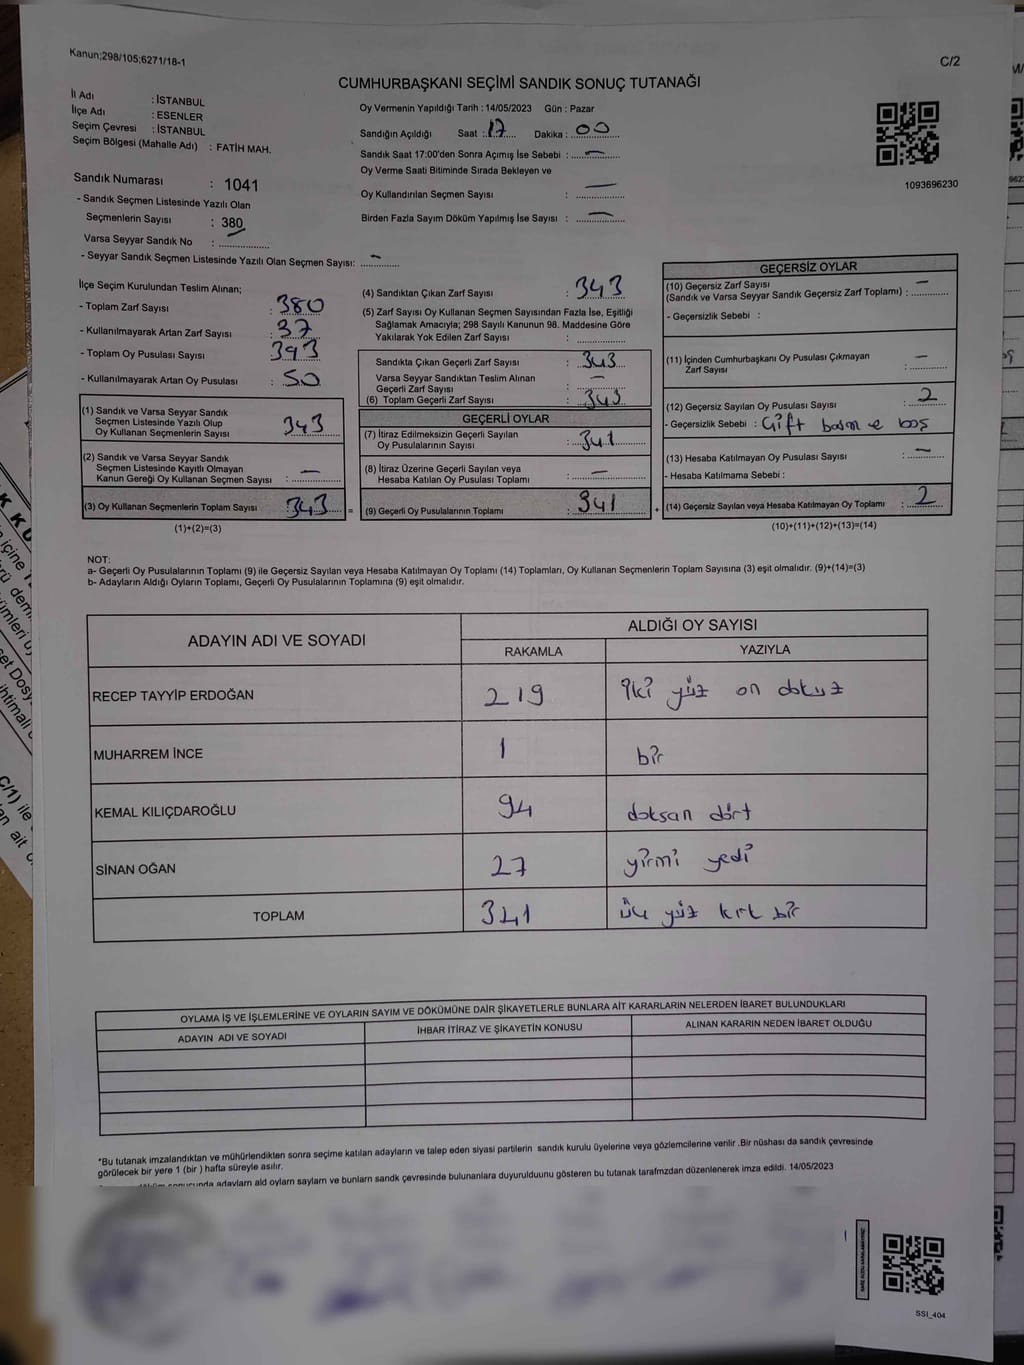 Kanun;298/105;6271/18-1
C/2
CUMHURBAŞKANI SEÇİMİ SANDIK SONUÇ TUTANAĞI
İl Adı : İSTANBUL
İlçe Adı : ESENLER
Seçim Çevresi : İSTANBUL
Seçim Bölgesi (Mahalle Adı) : FATİH MAH.
Oy Vermenin Yapıldığı Tarih : 14/05/2023 Gün : Pazar
Sandığın Açıldığı Saat : 17 Dakika : 00
Sandık Saat 17:00'den Sonra Açımış İse Sebebi : —
Oy Verme Saati Bitiminde Sırada Bekleyen ve
Oy Kullandırılan Seçmen Sayısı : —
Birden Fazla Sayım Döküm Yapılmış İse Sayısı : —
1093696230
Sandık Numarası : 1041
- Sandık Seçmen Listesinde Yazılı Olan
Seçmenlerin Sayısı : 380
Varsa Seyyar Sandık No : —
- Seyyar Sandık Seçmen Listesinde Yazılı Olan Seçmen Sayısı: —
İlçe Seçim Kurulundan Teslim Alınan;
- Toplam Zarf Sayısı : 380
- Kullanılmayarak Artan Zarf Sayısı : 37
- Toplam Oy Pusulası Sayısı : 393
- Kullanılmayarak Artan Oy Pusulası : 50
(1) Sandık ve Varsa Seyyar Sandık
Seçmen Listesinde Yazılı Olup
Oy Kullanan Seçmenlerin Sayısı : 343
(2) Sandık ve Varsa Seyyar Sandık
Seçmen Listesinde Kayıtlı Olmayan
Kanun Gereği Oy Kullanan Seçmen Sayısı : —
(3) Oy Kullanan Seçmenlerin Toplam Sayısı : 343 =
(1)+(2)=(3)
(4) Sandıktan Çıkan Zarf Sayısı : 343
(5) Zarf Sayısı Oy Kullanan Seçmen Sayısından Fazla İse, Eşitliği
Sağlamak Amacıyla; 298 Sayılı Kanunun 98. Maddesine Göre
Yakılarak Yok Edilen Zarf Sayısı :
Sandıkta Çıkan Geçerli Zarf Sayısı : 343
Varsa Seyyar Sandıktan Teslim Alınan
Geçerli Zarf Sayısı : —
(6) Toplam Geçerli Zarf Sayısı : 343
GEÇERLİ OYLAR
(7) İtiraz Edilmeksizin Geçerli Sayılan
Oy Pusulalarının Sayısı : 341
(8) İtiraz Üzerine Geçerli Sayılan veya
Hesaba Katılan Oy Pusulası Toplamı : —
(9) Geçerli Oy Pusulalarının Toplamı : 341 +
GEÇERSİZ OYLAR
(10) Geçersiz Zarf Sayısı
(Sandık ve Varsa Seyyar Sandık Geçersiz Zarf Toplamı) : —
- Geçersizlik Sebebi :
(11) İçinden Cumhurbaşkanı Oy Pusulası Çıkmayan
Zarf Sayısı : —
(12) Geçersiz Sayılan Oy Pusulası Sayısı : 2
- Geçersizlik Sebebi : Çift basım ve boş
(13) Hesaba Katılmayan Oy Pusulası Sayısı : —
- Hesaba Katılmama Sebebi :
(14) Geçersiz Sayılan veya Hesaba Katılmayan Oy Toplamı : 2
(10)+(11)+(12)+(13)=(14)
NOT:
a- Geçerli Oy Pusulalarının Toplamı (9) ile Geçersiz Sayılan veya Hesaba Katılmayan Oy Toplamı (14) Toplamları, Oy Kullanan Seçmenlerin Toplam Sayısına (3) eşit olmalıdır. (9)+(14)=(3)
b- Adayların Aldığı Oyların Toplamı, Geçerli Oy Pusulalarının Toplamına (9) eşit olmalıdır.
ADAYIN ADI VE SOYADI
ALDIĞI OY SAYISI
RAKAMLA YAZIYLA
RECEP TAYYİP ERDOĞAN 219 iki yüz on dokuz
MUHARREM İNCE 1 bir
KEMAL KILIÇDAROĞLU 94 doksan dört
SİNAN OĞAN 27 yirmi yedi
TOPLAM 341 üç yüz kırk bir
OYLAMA İŞ VE İŞLEMLERİNE VE OYLARIN SAYIM VE DÖKÜMÜNE DAİR ŞİKAYETLERLE BUNLARA AİT KARARLARIN NELERDEN İBARET BULUNDUKLARI
ADAYIN ADI VE SOYADI İHBAR İTİRAZ VE ŞİKAYETİN KONUSU ALINAN KARARIN NEDEN İBARET OLDUĞU
*Bu tutanak imzalandıktan ve mühürlendikten sonra seçime katılan adayların ve talep eden siyasi partilerin sandık kurulu üyelerine veya gözlemcilerine verilir .Bir nüshası da sandık çevresinde
görülecek bir yere 1 (bir ) hafta süreyle asılır.
sonucunda adayların ald oyların sayların ve bunların sandk çevresinde bulunanlara duyurulduunu gösteren bu tutanak tarafmzdan düzenlenerek imza edildi. 14/05/2023
SSI_404